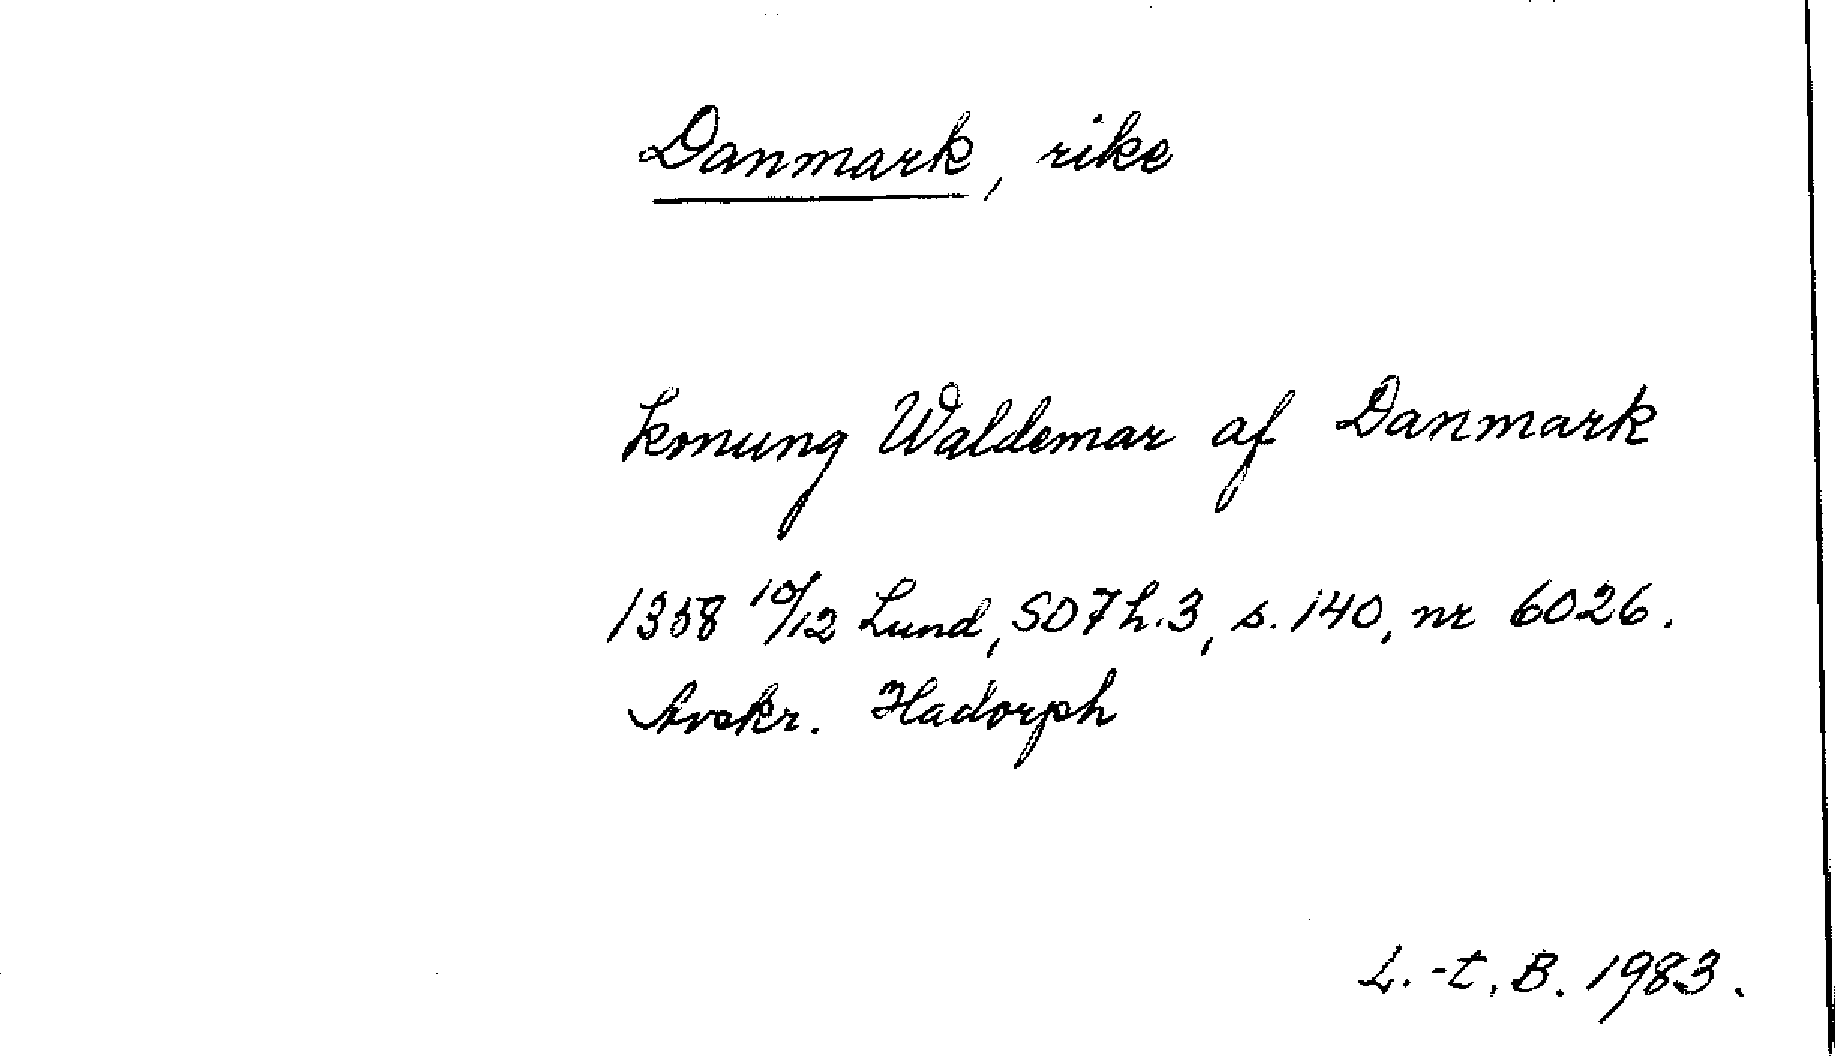 Danmark, rike
konung Waldemar af Danmark
1358 10/12 Lund, SD 7 h. 3, s. 140, nr 6026.
Avskr. Hadorph
L.-t. B. 1983.